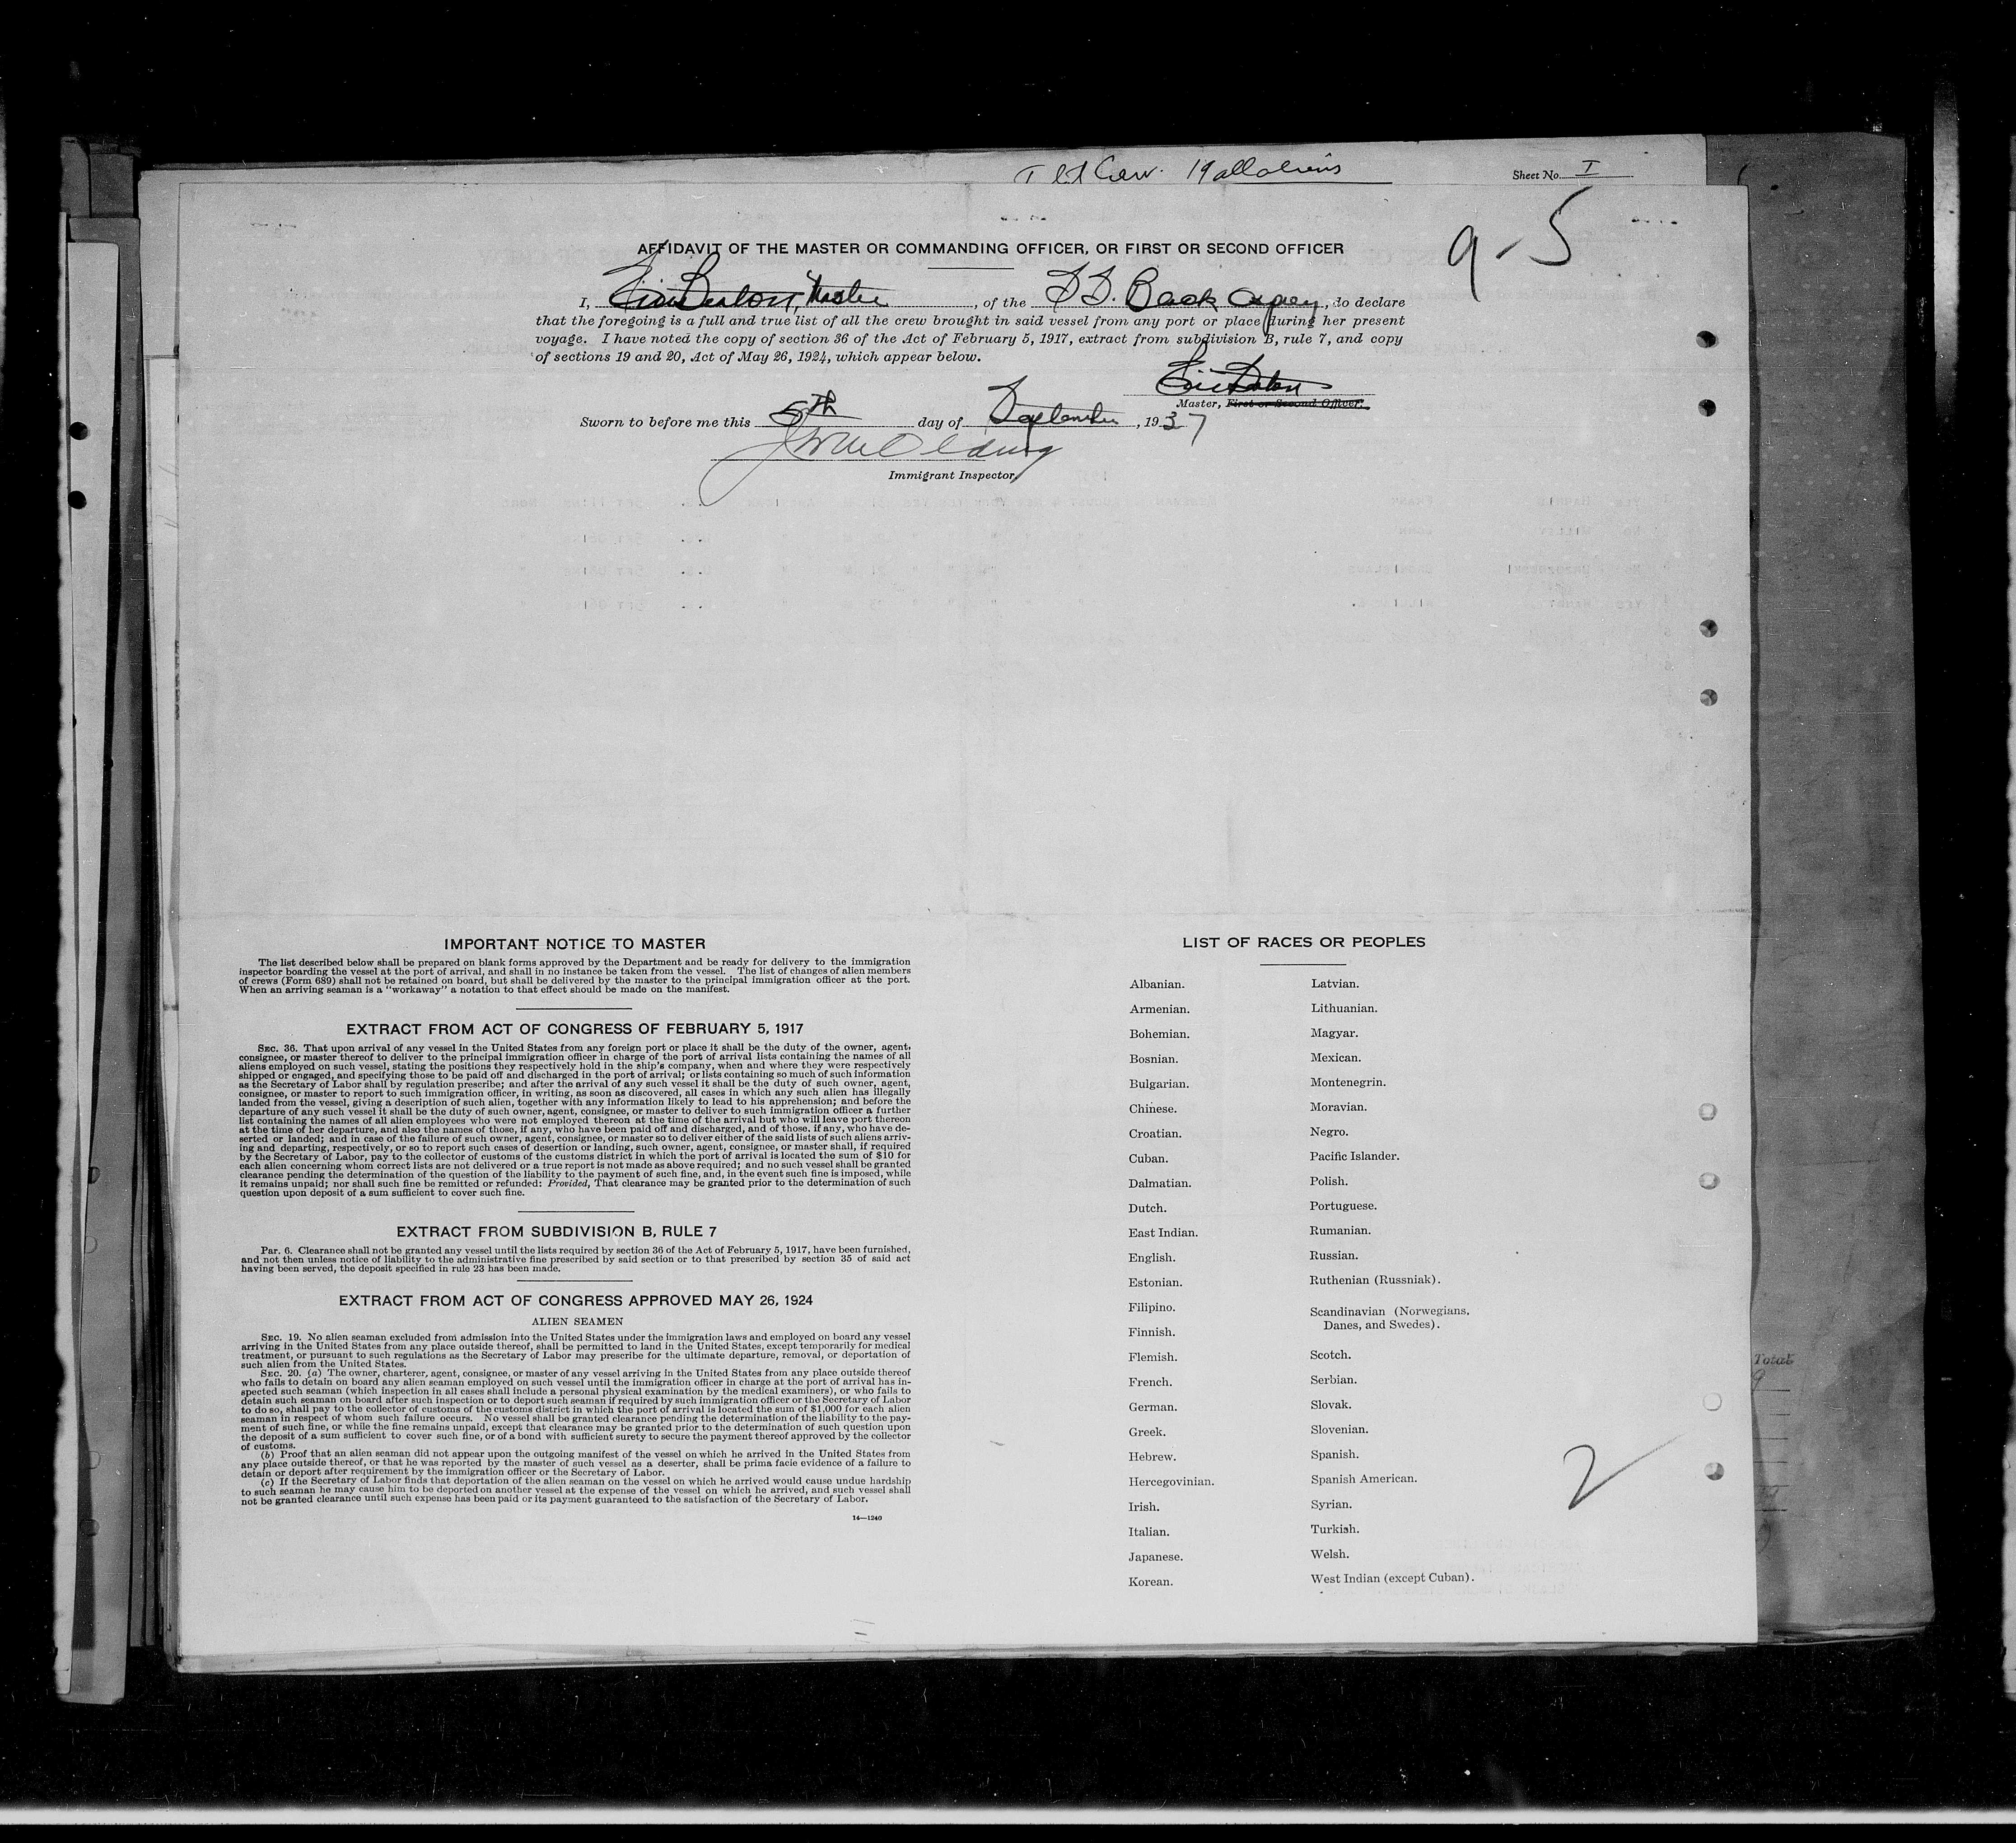 Sheet No. I
9-5
AFFIDAVIT OF THE MASTER OR COMMANDING OFFICER, OR FIRST OR SECOND OFFICER
I, Master, of the SS. Black Osprey, do declare
that the foregoing is a full and true list of all the crew brought in said vessel from any port or place during her present
voyage. I have noted the copy of section 36 of the Act of February 5, 1917, extract from subdivision B, rule 7, and copy
of sections 19 and 20, Act of May 26, 1924, which appear below.
Master, First or Second Officer.
Sworn to before me this 5th day of September, 1937
Immigrant Inspector
IMPORTANT NOTICE TO MASTER
The list described below shall be prepared on blank forms approved by the Department and be ready for delivery to the immigration
inspector boarding the vessel at the port of arrival, and shall in no instance be taken from the vessel. The list of changes of alien members
of crews (Form 689) shall not be retained on board, but shall be delivered by the master to the principal immigration officer at the port.
When an arriving seaman is a "workaway" a notation to that effect should be made on the manifest.
EXTRACT FROM ACT OF CONGRESS OF FEBRUARY 5, 1917
SEC. 36. That upon arrival of any vessel in the United States from any foreign port or place it shall be the duty of the owner, agent,
consignee, or master thereof to deliver to the principal immigration officer in charge of the port of arrival lists containing the names of all
aliens employed on such vessel, stating the positions they respectively hold in the ship's company, when and where they were respectively
shipped or engaged, and specifying those to be paid off and discharged in the port of arrival; or lists containing so much of such information
as the Secretary of Labor shall by regulation prescribe; and after the arrival of any such vessel it shall be the duty of such owner, agent,
consignee, or master to report to such immigration officer, in writing, as soon as discovered, all cases in which any such alien has illegally
landed from the vessel, giving a description of such alien, together with any information likely to lead to his apprehension; and before the
departure of any such vessel it shall be the duty of such owner, agent, consignee, or master to deliver to such immigration officer a further
list containing the names of all alien employees who were not employed thereon at the time of the arrival but who will leave port thereon
at the time of her departure, and also the names of those, if any, who have been paid off and discharged, and of those, if any, who have de-
serted or landed; and in case of the failure of such owner, agent, consignee, or master so to deliver either of the said lists of such aliens arriv-
ing and departing, respectively, or so to report such cases of desertion or landing, such owner, agent, consignee, or master shall, if required
by the Secretary of Labor, pay to the collector of customs of the customs district in which the port of arrival is located the sum of $10 for
each alien concerning whom correct lists are not delivered or a true report is not made as above required; and no such vessel shall be granted
clearance pending the determination of the question of the liability to the payment of such fine, and, in the event such fine is imposed, while
it remains unpaid; nor shall such fine be remitted or refunded: Provided, That clearance may be granted prior to the determination of such
question upon deposit of a sum sufficient to cover such fine.
EXTRACT FROM SUBDIVISION B, RULE 7
PAR. 6. Clearance shall not be granted any vessel until the lists required by section 36 of the Act of February 5, 1917, have been furnished,
and not then unless notice of liability to the administrative fine prescribed by said section or to that prescribed by section 35 of said act
having been served, the deposit specified in rule 23 has been made.
EXTRACT FROM ACT OF CONGRESS APPROVED MAY 26, 1924
ALIEN SEAMEN
SEC. 19. No alien seaman excluded from admission into the United States under the immigration laws and employed on board any vessel
arriving in the United States from any place outside thereof, shall be permitted to land in the United States, except temporarily for medical
treatment, or pursuant to such regulations as the Secretary of Labor may prescribe for the ultimate departure, removal, or deportation of
such alien from the United States.
SEC. 20. (a) The owner, charterer, agent, consignee, or master of any vessel arriving in the United States from any place outside thereof
who fails to detain on board any alien seaman employed on such vessel until the immigration officer in charge at the port of arrival has in-
spected such seaman (which inspection in all cases shall include a personal physical examination by the medical examiners), or who fails to
detain such seaman on board after such inspection or to deport such seaman if required by such immigration officer or the Secretary of Labor
to do so, shall pay to the collector of customs of the customs district in which the port of arrival is located the sum of $1,000 for each alien
seaman in respect of whom such failure occurs. No vessel shall be granted clearance pending the determination of the liability to the pay-
ment of such fine, or while the fine remains unpaid, except that clearance may be granted prior to the determination of such question upon
the deposit of a sum sufficient to cover such fine, or of a bond with sufficient surety to secure the payment thereof approved by the collector
of customs.
(b) Proof that an alien seaman did not appear upon the outgoing manifest of the vessel on which he arrived in the United States from
any place outside thereof, or that he was reported by the master of such vessel as a deserter, shall be prima facie evidence of a failure to
detain or deport after requirement by the immigration officer or the Secretary of Labor.
(c) If the Secretary of Labor finds that deportation of the alien seaman on the vessel on which he arrived would cause undue hardship
to such seaman he may cause him to be deported on another vessel at the expense of the vessel on which he arrived, and such vessel shall
not be granted clearance until such expense has been paid or its payment guaranteed to the satisfaction of the Secretary of Labor.
14—1240
LIST OF RACES OR PEOPLES
Albanian.
Armenian.
Bohemian.
Bosnian.
Bulgarian.
Chinese.
Croatian.
Cuban.
Dalmatian.
Dutch.
East Indian.
English.
Estonian.
Filipino.
Finnish.
Flemish.
French.
German.
Greek.
Hebrew.
Hercegovinian.
Irish.
Italian.
Japanese.
Korean.
Latvian.
Lithuanian.
Magyar.
Mexican.
Montenegrin.
Moravian.
Negro.
Pacific Islander.
Polish.
Portuguese.
Rumanian.
Russian.
Ruthenian (Russniak).
Scandinavian (Norwegians,
Danes, and Swedes).
Scotch.
Serbian.
Slovak.
Slovenian.
Spanish.
Spanish American.
Syrian.
Turkish.
Welsh.
West Indian (except Cuban).
2
Total